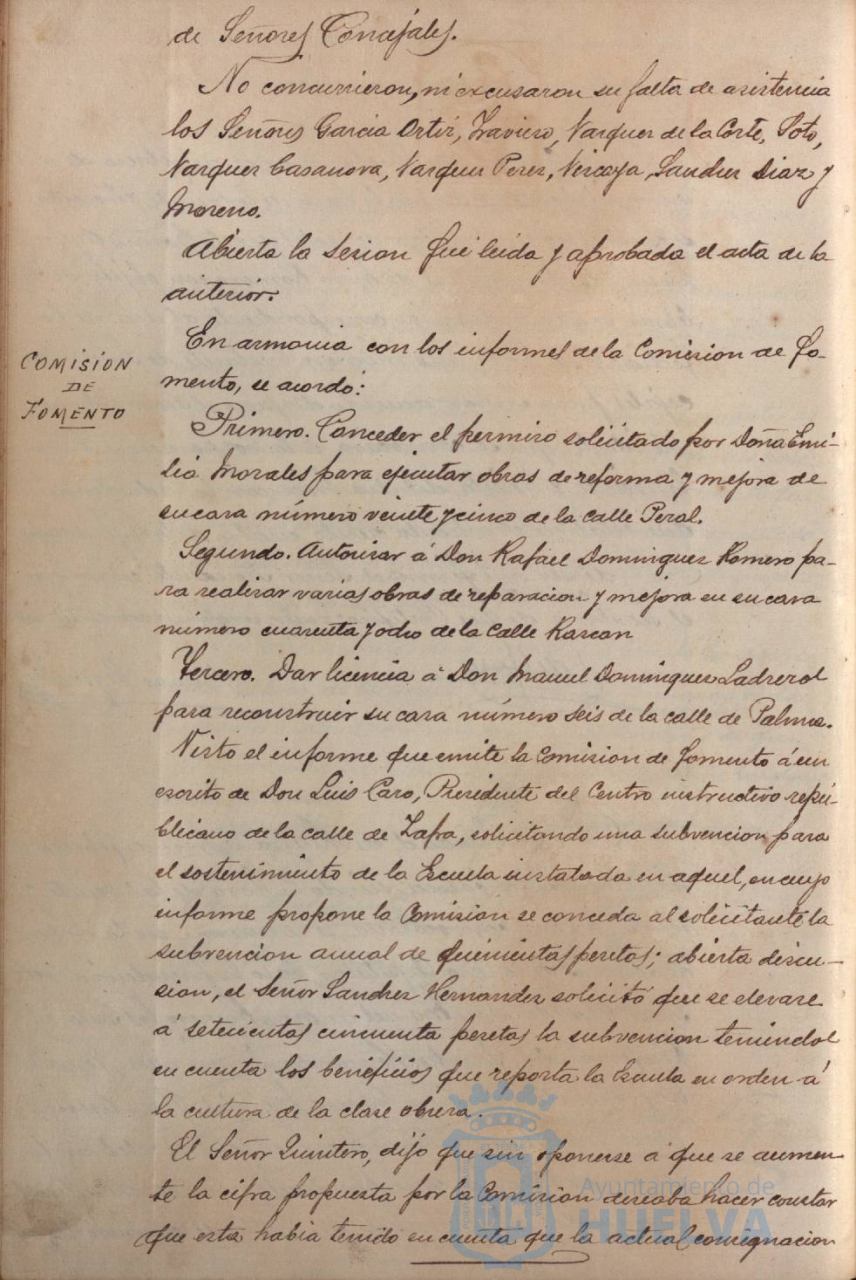 de Señores Concejales.
No concurrieron, ni excusaron su falta de asistencia
los Señores Garcia Ortiz, Traviero, Vazquez de la Corte, Soto,
Vazquez Casanova, Vazquez Perez, Vizcaya, Sanchez Diaz y
Moreno.
Abierta la sesion fué leida y aprobada el acta de la
anterior.
En armonia con los informes de la Comision de Fo-
mento, se acordó:
COMISION
DE
FOMENTO
Primero. Conceder el permiso solicitado por Doña Emi-
lia Morales para ejecutar obras de reforma y mejora de
su casa número veinte y cinco de la calle Peral.
Segundo. Autorizar á Don Rafael Dominguez Romero pa-
ra realizar varias obras de reparacion y mejora en su casa
número cuarenta y ocho de la calle Rascon
Tercero. Dar licencia á Don Manuel Dominguez
para reconstruir su casa número seis de la calle de Palma.
Visto el informe que emite la Comision de Fomento á un
escrito de Don Luis Caro, Presidente del Centro instructivo repu-
blicano de la calle de Zafra, solicitando una subvencion para
el sostenimiento de la Escuela instalada en aquel, en cuyo
informe propone la Comision se conceda al solicitante la
subvencion anual de quinientas pesetas; abierta discu-
sion, el Señor Sanchez Hernandez solicitó que se elevase
á setecientas cincuenta pesetas la subvencion teniendo
en cuenta los beneficios que reporta la Escuela en orden á
la cultura de la clase obrera.
El Señor Quintero, dijo que sin oponerse á que se aumen-
te la cifra propuesta por la Comision deseaba hacer constar
que esta habia tenido en cuenta que la actual consignacion
Ayuntamiento de
HUELVA